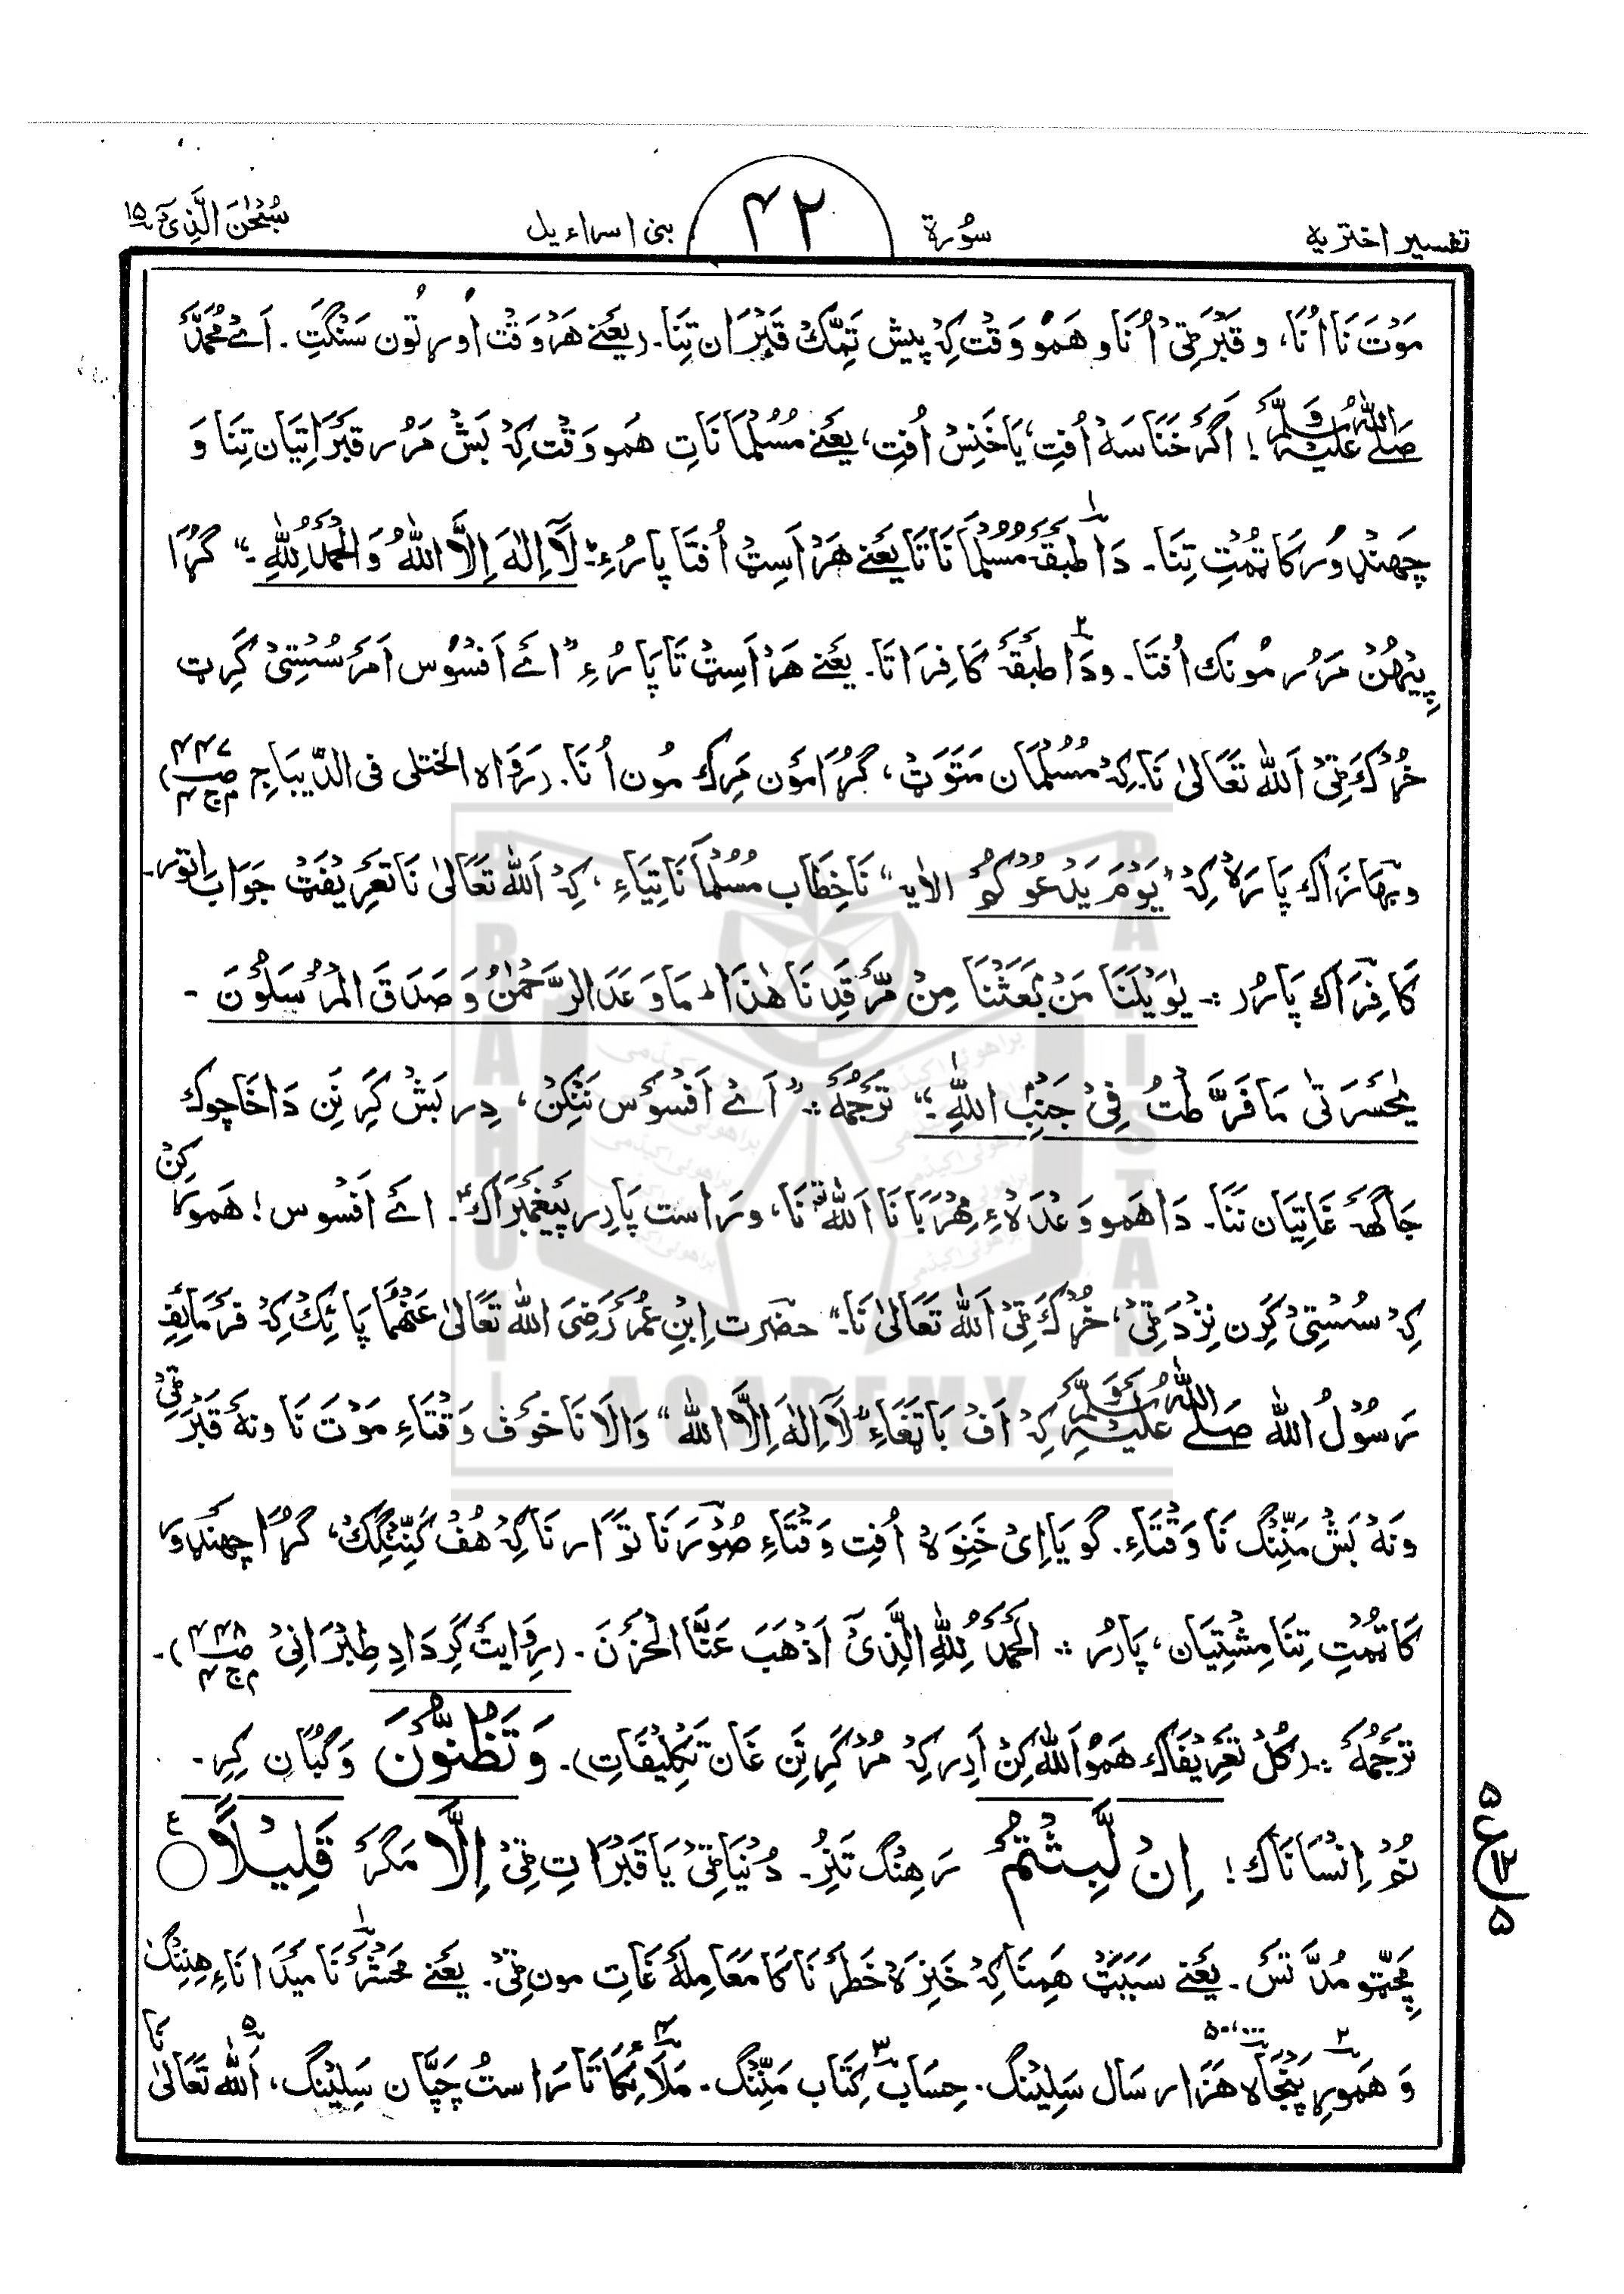 تفسیر اختریہ سُورۃ ۴۲ بنی اسراءیل سُبْحٰنَ الَّذِیْٓ ۱۵
مَوْتَ نَا اُنَا، و قَبْرَ ٹِیْ اُنَا و هَمُو وَقْت کِہْ پیش تِمِّکْ قَبْرَان تِنَا۔ (یَعْنے هَرْ وَقْت اَوْر تُون سَنْگتِ۔ اَےْ مُحَمَّدْ
صَلَّے اللّٰہُ عَلَیْہِ وَسَلَّمْ! اَگَرْ خَنَاسَہ اُفتِ، یَا خَنِسْ اُفتِ، یَعْنے مُسُلْمَانَاتِ هَمو وَقْت کِہْ بَشْ مَرُر قَبْرَاتِیَان تِنَا وَ
چَهنڈور کَاتُمْتِ تِنَا۔ دَا طَبقَہ مُسُلْمَانَاتَا یَعْنے هَرْ اَسِٹ اُفتَا پارُءِ "لَآ اِلٰہَ اِلَّا اللّٰہُ وَالْحَمْدُ لِلّٰہِ۔" گُڑَا
پِیْهُنْ مَرُر مُونک اُفتَا۔ و دَا طَبقَہ کَافِرَاتَا۔ یَعْنے هَرْ اَسِٹ تَا پَارُءِ "اےْ اَفْسُوْس اَمَرْ سُسْتِیْ کَرِٹ
خُرْک ٹِیْ اَللّٰہ تَعَالٰی نَا۔ کِہْ مُسُلْمَان مَتَوَٹ، گُڑَا مَوْن مَرِک مُون اُنَا۔ (رَوَاہ الختلی فی الدّیبَاجِ صـ ۴۴۷ م ج ۴)
و بَهَازَاک پَارَہ کِہْ "یَوْمَ یَدْعُوْکُمْ الاٰیہ" نَا خِطَاب مُسُلْمَانَاتِیَاءِ، کِہْ اَللّٰہ تَعَالٰی نَا تَعْرِیْفَٹ جَوَاب اِتور۔
کَافِرَاک پَارُر :۔ یٰوَیْلَنَا مَنْۢ بَعَثَنَا مِنْ مَّرْقَدِنَا هٰذَا مَا وَعَدَ الرَّحْمٰنُ وَ صَدَقَ الْمُرْسَلُوْنَ ۔
یٰحَسْرَتٰی مَا فَرَّطْتُّ فِیْ جَنْۢبِ اللّٰہِ۔" تَرْجُمَہ :۔ "اَےْ اَفْسُوْس نَنْکِنْ، دِر بَشْ کَرِ نَنِ دَا خَاچوک
جَاگَهہ غَاتِیَان نَنَا۔ دَا هَمو وَعْدَہ ءِ مِهْرَبَانَا اَللّٰہ نَا، و رَاست پَادِر پَیْغَمْبَرَاک"۔ اےْ اَفْسوس! هَمو کِنْ
کِہْ سُسْتِیْ کَرِن نِزْدَ ٹِیْ، خُرْک ٹِیْ اَللّٰہ تَعَالٰی نَا۔" حضرت اِبْنِ عُمَرْ رَضِیَ اللّٰہ تَعَالٰی عَنْهُمَا پَائِکْ کِہْ فَرْمَائِفِ
رَسُوْلُ اللّٰہ صَلَّے اللّٰہُ عَلَیْہِ وَسَلَّمْ کِہْ اَفْ بَاتِغَاءِ "لَآ اِلٰہَ اِلَّا اللّٰہ" وَالَا نَا خَوْف وَقْتَاءِ مَوْتَ نَا و نَہ قَبْرَ ٹِیْ
و نَہْ بَشْ مَنِّنْگ نَا وَقْتَاءِ۔ گویَا اِیْ خَنِوَہ اُفِت وَقْتَاءِ صُوْرَ نَا تَوَار نَا کِہْ هُفْ کَنِّنْگِکْ، گُڑَا چَهنڈور
کَاتُمْتِ تِنَا مِشْتِیَان، پَارُر :۔ الْحَمْدُ لِلّٰہِ الَّذِیْٓ اَذْهَبَ عَنَّا الْحَزَنَ۔ (رِوَایَتْ کَرِ دَادِ طِبْرَانِیْ صـ ۴۴۸ م ج ۴)۔
تَرْجُمَہ :۔ (کُلْ تَعْرِیْفَاک هَمُو اَللّٰہ کِنْ اَدِر کِہْ مُرْ کَرِ نَنِ غَان تَکْلِیْفَاتِ)۔ وَتَظُنُّوْنَ وَ گُمَان کِرِ۔
نُمْ اِنْسَانَاک! اِنْ لَّبِثْتُمْ رَهِنْگ تَنِرْ۔ دُنْیَا ٹِیْ یَا قَبْرَاتِ ٹِیْ اِلَّا مَگَرْ قَلِیْلًا ع
مَچِّٹو مُدَّتَس۔ یَعْنے سَبَبَٹ هَمِنَا کِہْ خَنِرَہ خَطَرْنَاکَا مُعَامِلَہ غَاتِ مون ٹِیْ۔ یَعْنے مَحْشَرْ نَا مَیْدَانَاءِ هِنِنْگ ۱
وَ هَمورِ پَنْجَاہ هَزَار سَال سَلِیْنگ۔ حِسَاب کِتَاب مَنِّنْگ۔ مَلَائِکَاتَا رَاسْتُ چَپَّان سَلِیْنگ، اَللّٰہ تَعَالٰی نَا
۵ ع ۵
BRAHUI ACADEMY PAKISTAN
براهوئی اکیڈمی